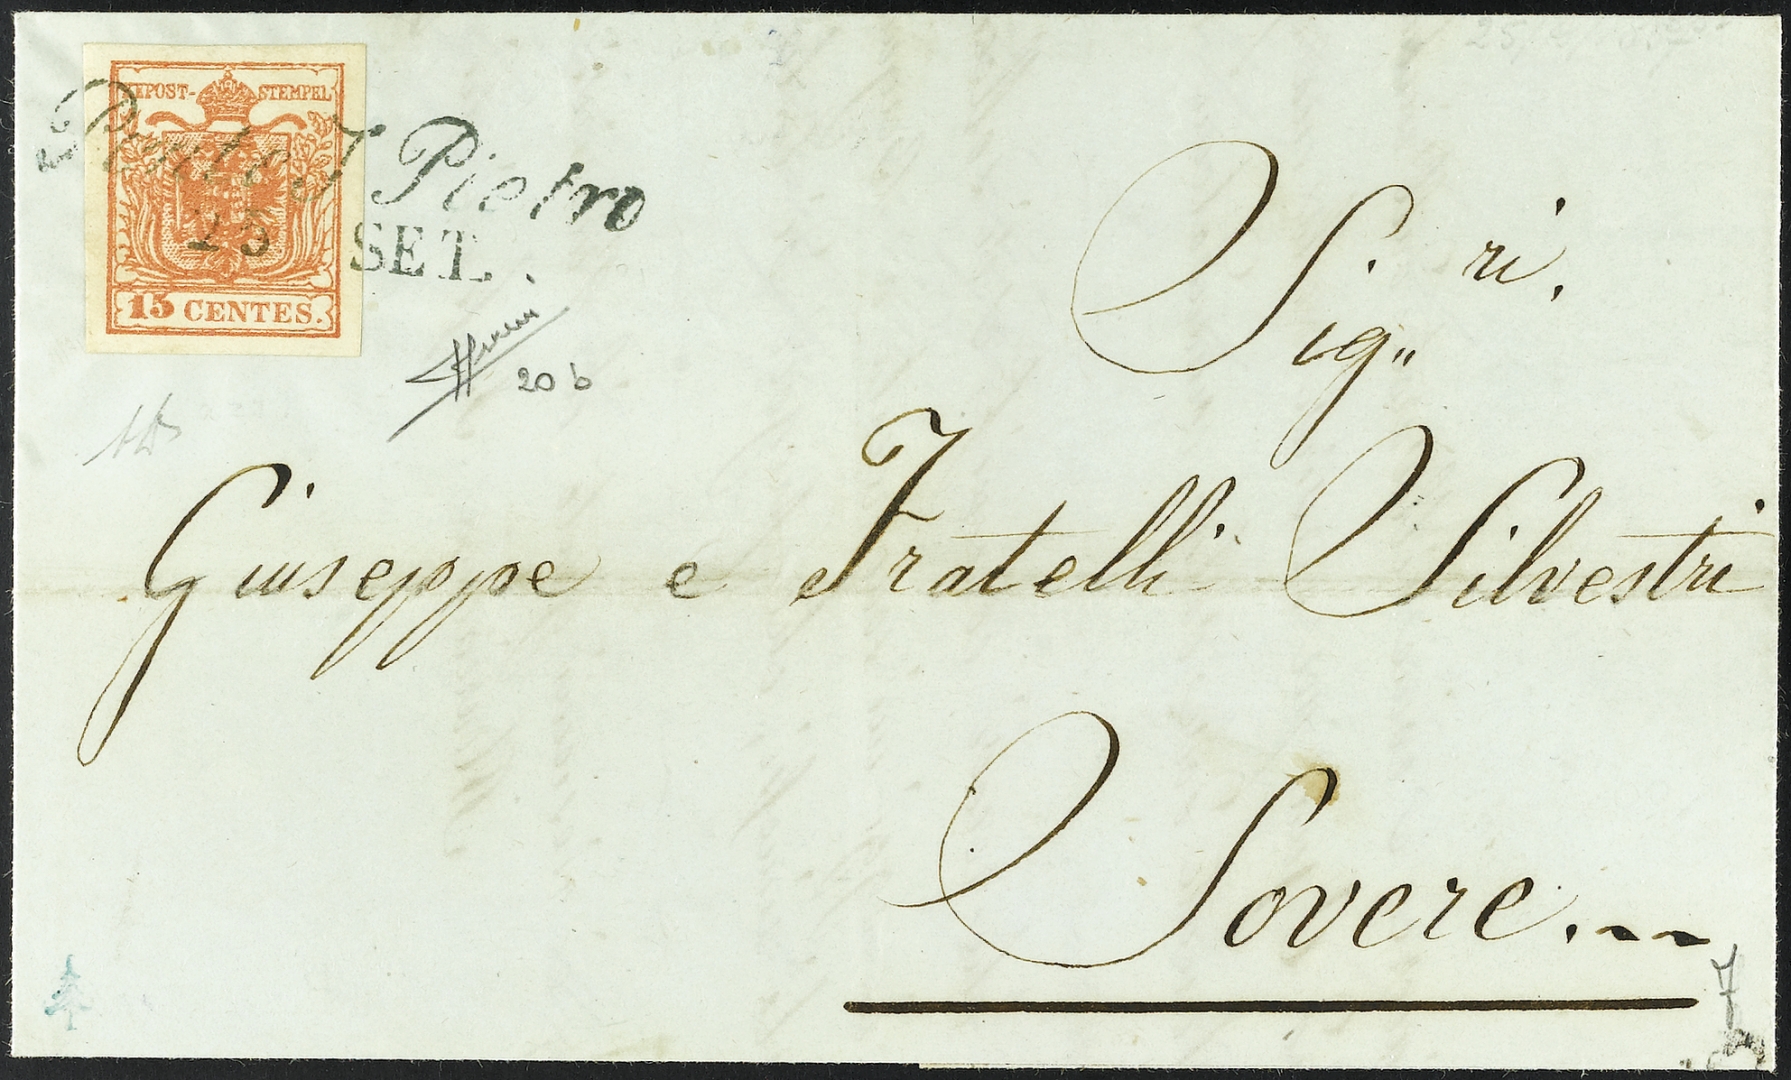 KPOST-STEMPEL
Ponte S Pietro
25 SET.
15 CENTES.
20 b
Sig.ri
Sig"
Giuseppe e Fratelli Silvestri
Sovere...
7